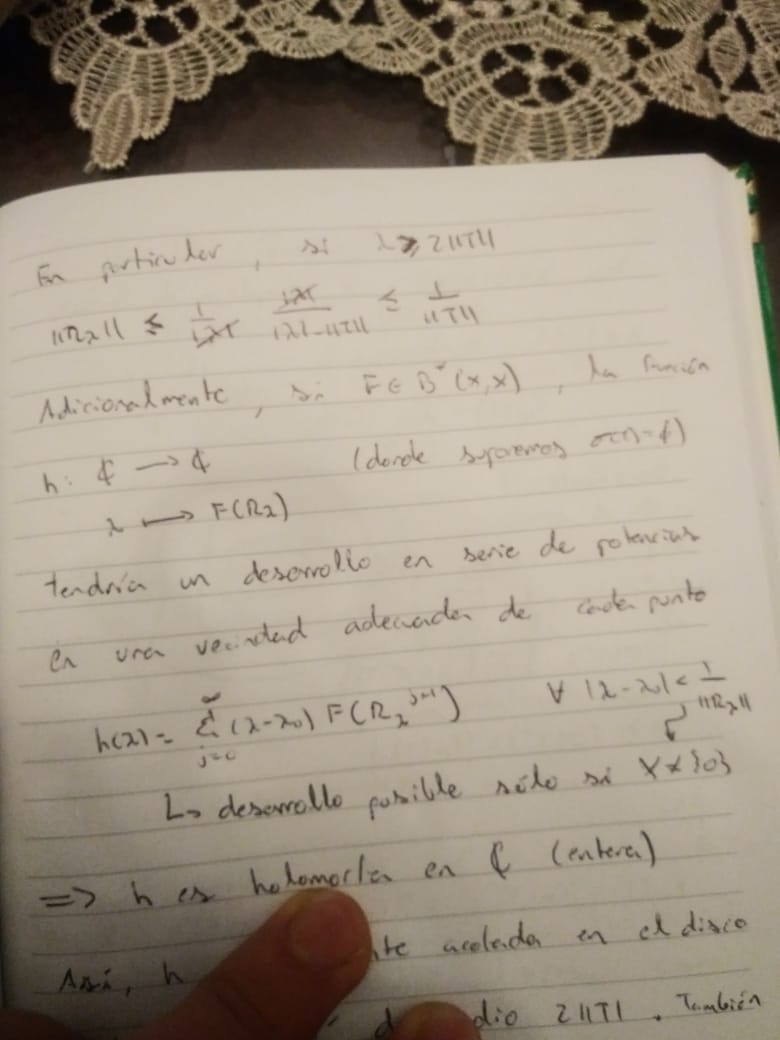 En particular, si λ ≥ 2||T||
||Rλ|| ≤ 1/|λ| |λ|/(|λ|-||T||) ≤ 1/||T||
Adicionalmente, si F ∈ B*(X,X), la función
h: ℂ → ℂ (donde suponemos σ(T)=∅)
λ ↦ F(Rλ)
tendría un desarrollo en serie de potencias
en una vecindad adecuada de cada punto
h(λ) = Σ_{j=0}^∞ (λ-λ0) F(Rλ^{j+1}) ∀ |λ-λ0| < 1/||Rλ||
↳ desarrollo posible sólo si X≠{0}
⇒ h es holomorfa en ℂ (entera)
Así, h acotada en el disco
2||T||. También